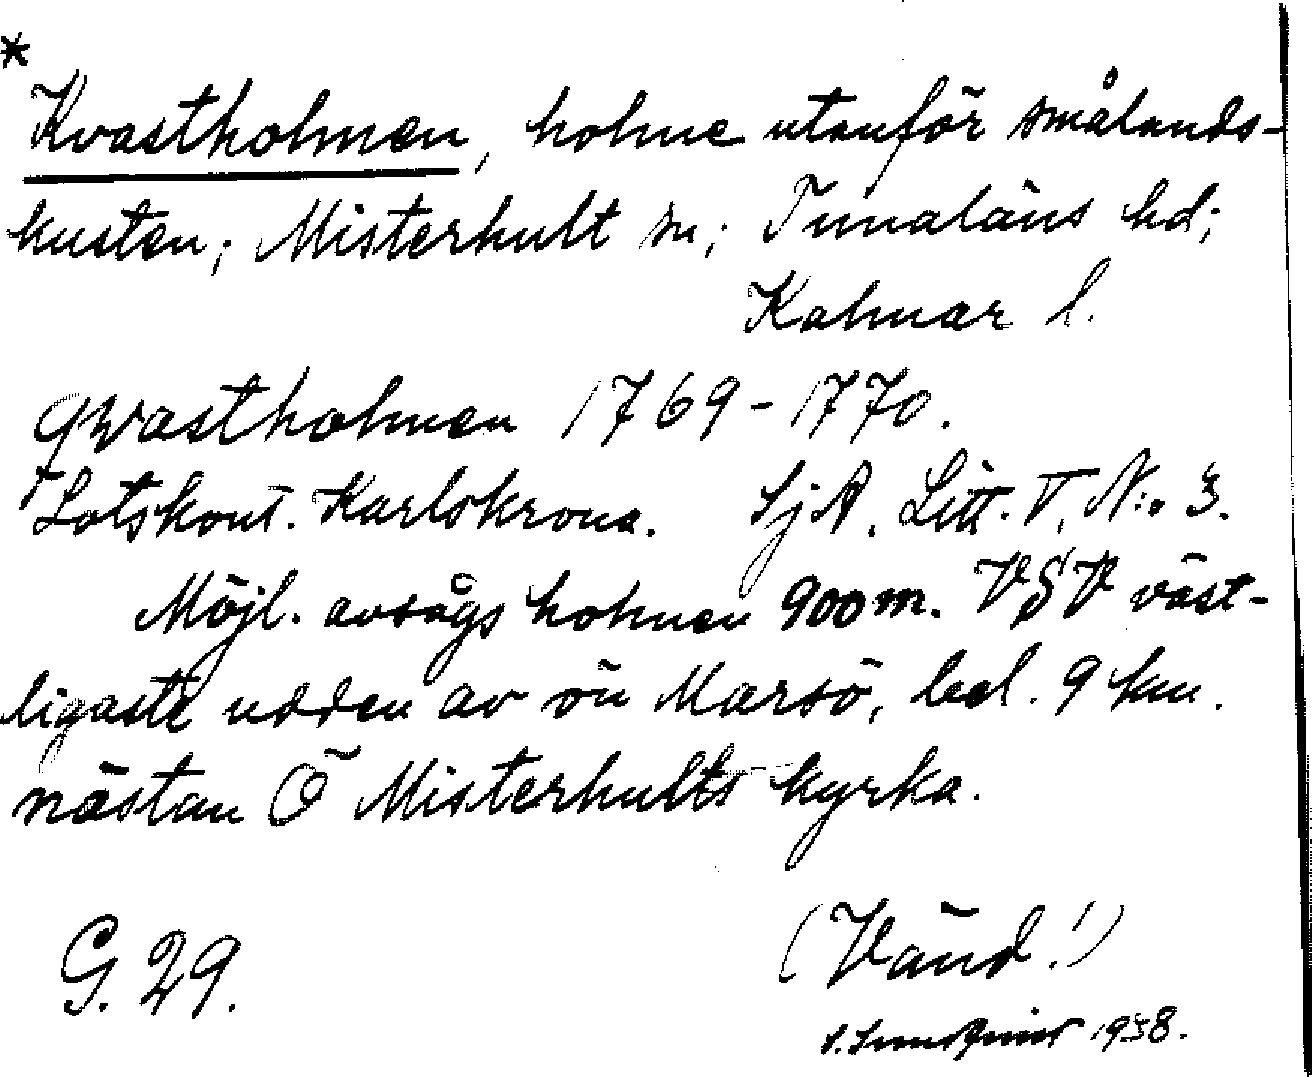 *
Kvastholmen, holme utanför smålands-
kusten; Misterhult sn; Tunaläns hd;
Kalmar l.
Qwastholmen 1769-1770.
Lotskont. Karlskrona. SjA. Litt. T, N:o 3.
Möjl. avságs holmen 900 m. VSV väst-
ligaste udden av ön Marsö, bel. 9 km.
nästan Ö Misterhults kyrka.
(Vänd!)
G. 29.
1938.